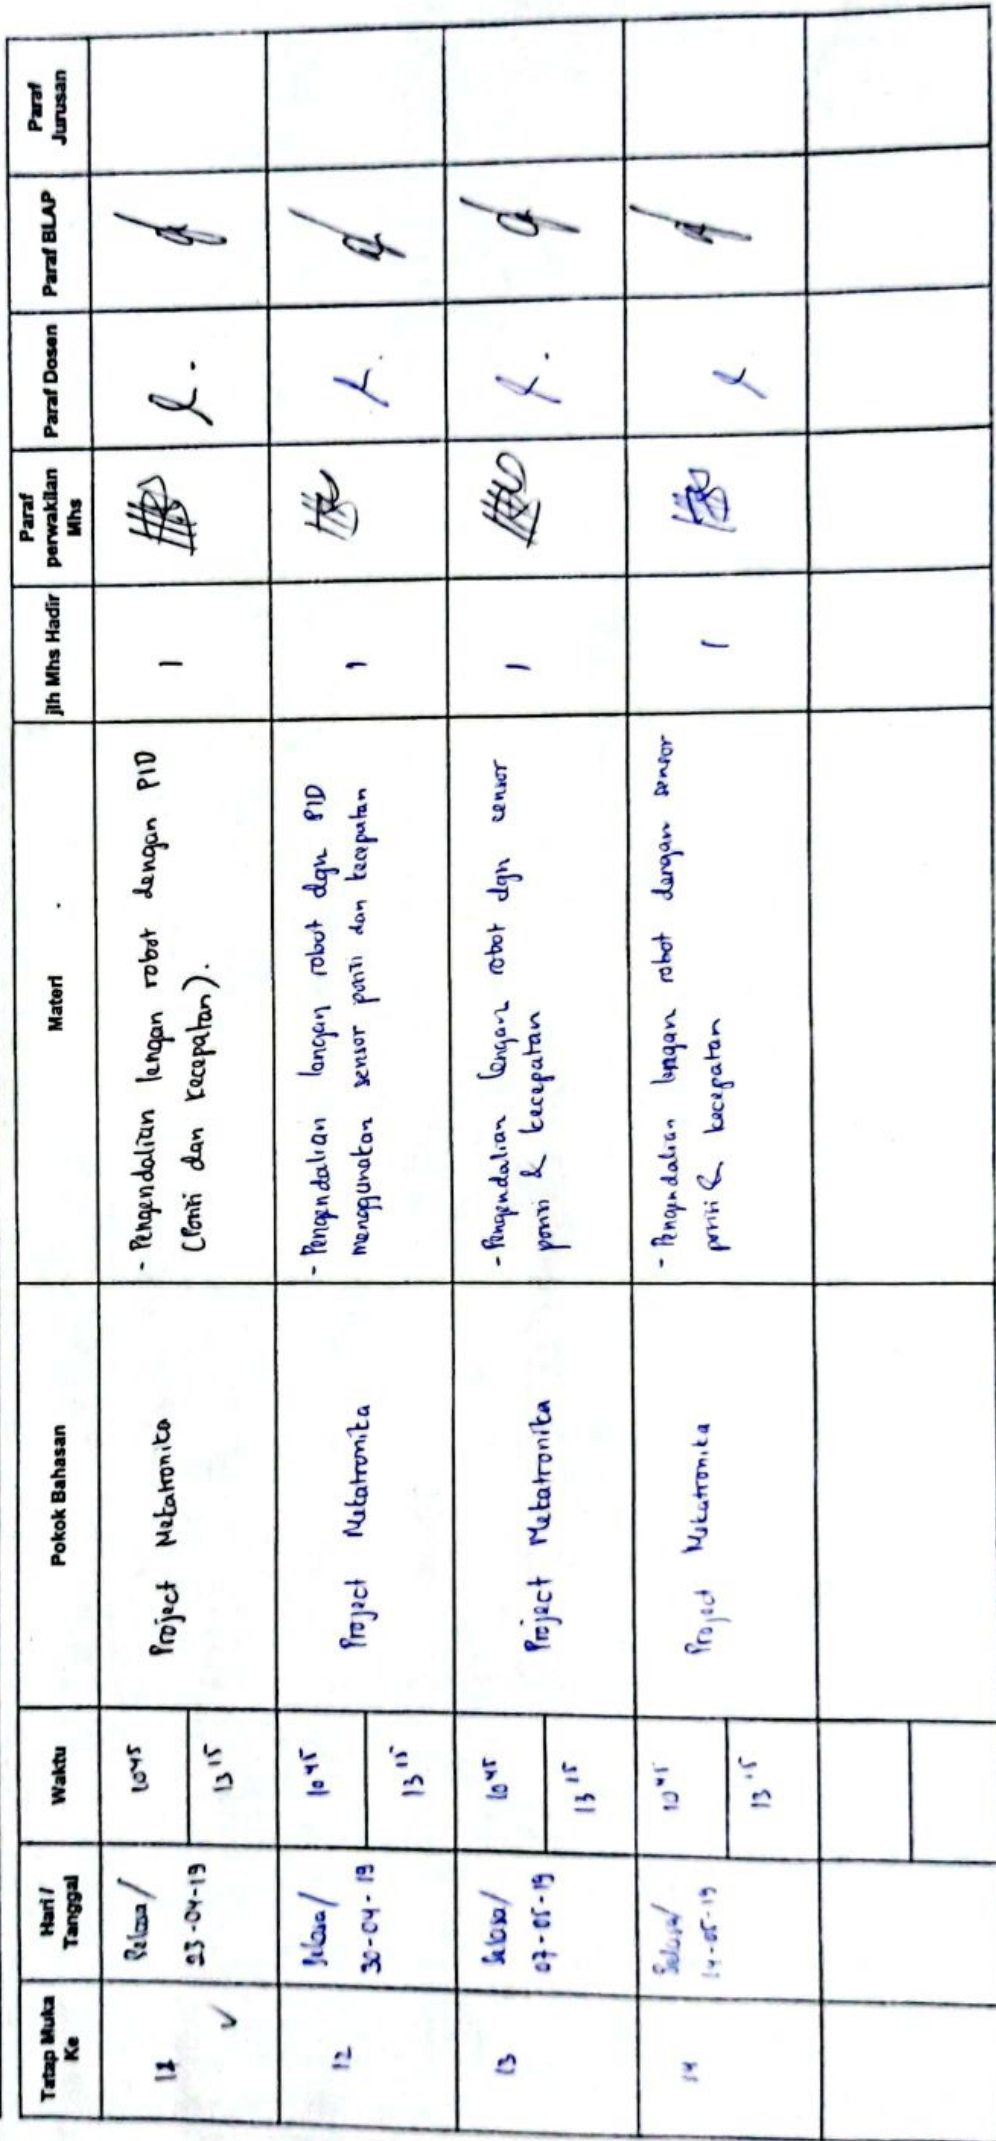 Tatap Muka Ke
Hari / Tanggal
Waktu
Pokok Bahasan
Materi
jlh Mhs Hadir
Paraf perwakilan Mhs
Paraf Dosen
Paraf BLAP
Paraf Jurusan
11 ✓
Selasa/
23-04-19
10 45
13 15
Project Mekatronika
- Pengendalian lengan robot dengan PID
(Posisi dan kecepatan).
1
12
Selasa/
30-04-19
10 45
13 15
Project Mekatronika
- Pengendalian lengan robot dgn PID
menggunakan sensor posisi dan kecepatan
1
13
Selasa/
07-05-19
10 45
13 15
Project Mekatronika
- Pengendalian lengan robot dgn sensor
posisi & kecepatan
1
14
Selasa/
14-05-19
10 45
13 15
Project Mekatronika
- Pengendalian lengan robot dengan sensor
posisi & kecepatan
1